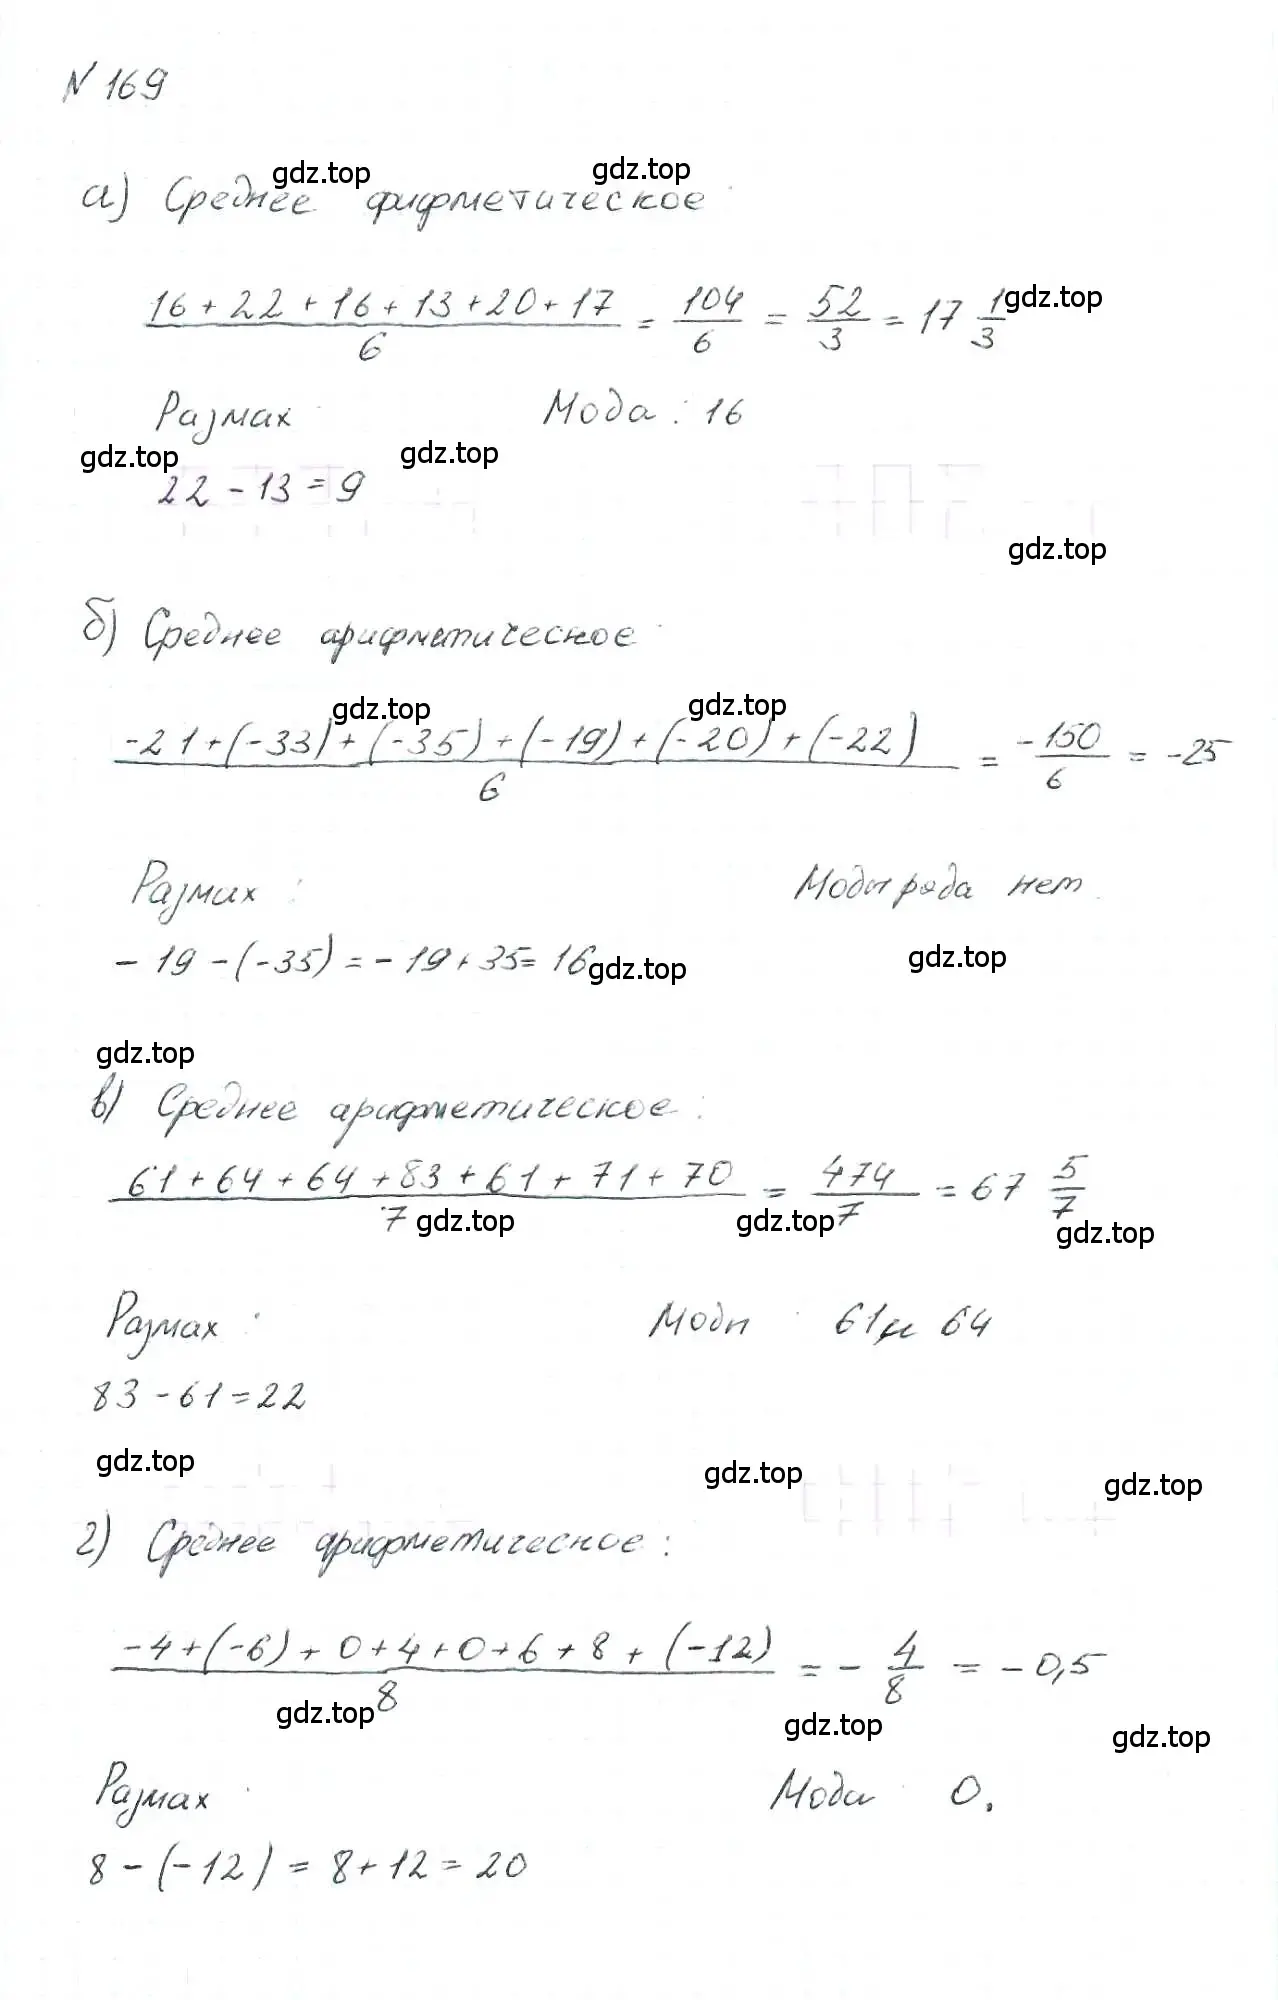 N 169
gdz.top gdz.top
а) Среднее арифметическое
16 + 22 + 16 + 13 + 20 + 17 / 6 = 104/6 = 52/3 = 17 1/3 gdz.top
Размах Мода : 16
gdz.top gdz.top
22 - 13 = 9
gdz.top
б) Среднее арифметическое
gdz.top gdz.top
-21 + (-33) + (-35) + (-19) + (-20) + (-22) / 6 = -150/6 = -25
Размах : Моды ряда нет.
- 19 - (-35) = - 19 + 35 = 16 gdz.top gdz.top
gdz.top
в) Среднее арифметическое :
61 + 64 + 64 + 83 + 61 + 71 + 70 / 7 = 474/7 = 67 5/7
gdz.top gdz.top gdz.top
Размах : Моды 61 и 64
83 - 61 = 22
gdz.top gdz.top gdz.top
г) Среднее арифметическое :
-4 + (-6) + 0 + 4 + 0 + 6 + 8 + (-12) / 8 = - 4/8 = - 0,5
gdz.top gdz.top gdz.top
Размах : Мода 0.
8 - (-12) = 8 + 12 = 20